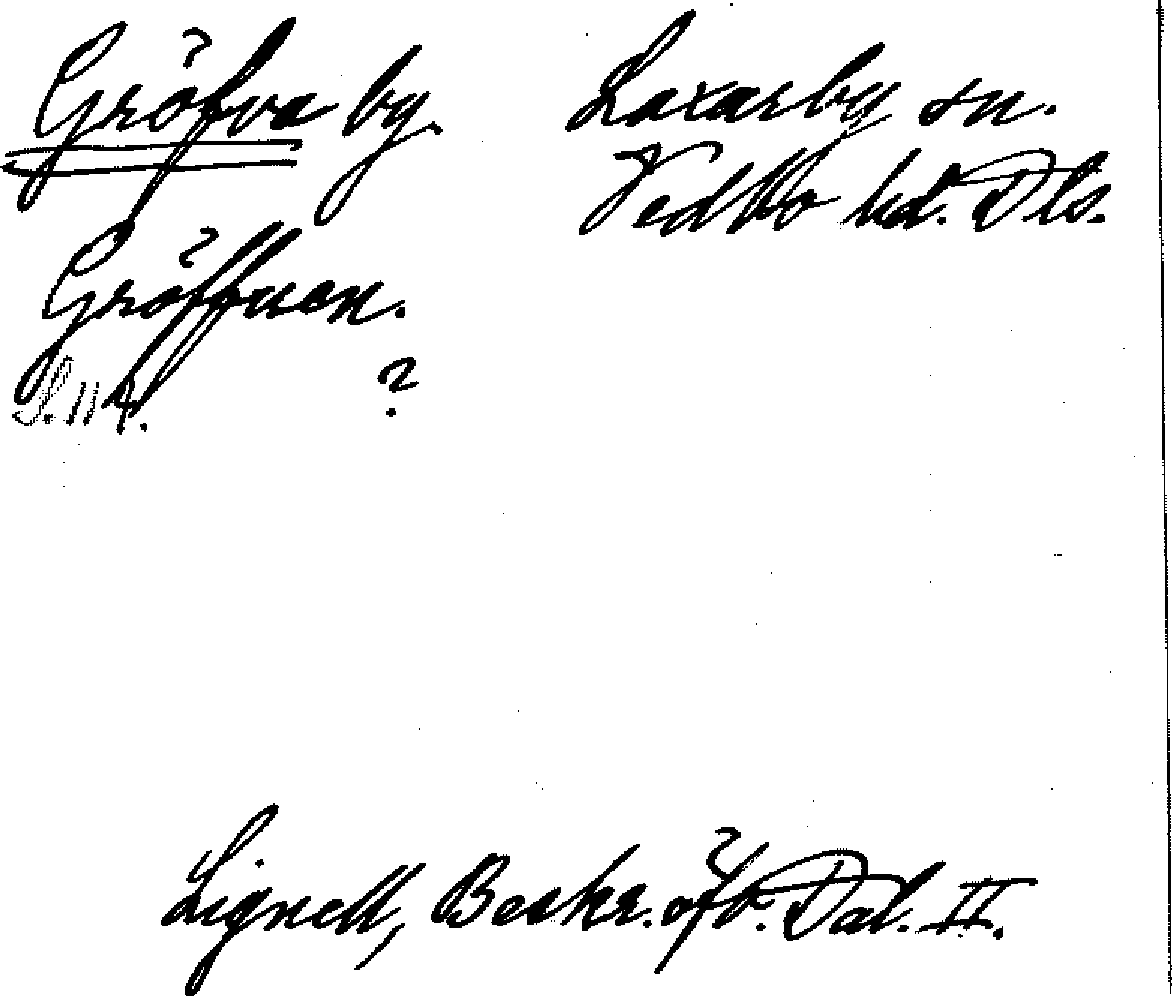 Gröfva by. Laxarby sn.
Vedbo hd. Dls.
Gröffuan.
S. 114. ?
Lignell, Beskr. öfv. Dal. II.